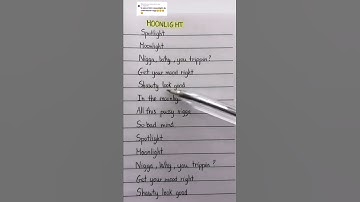 MOONLIGHT
Spotlight
Moonlight
Nigga, Why, you trippin?
Get your mood right
Shawty look good
In the moonlig
All this pussy nigga
So bad mind
Spotlight
Moonlight
Nigga, Why, you trippin?
Get your mood right
Shawty look good